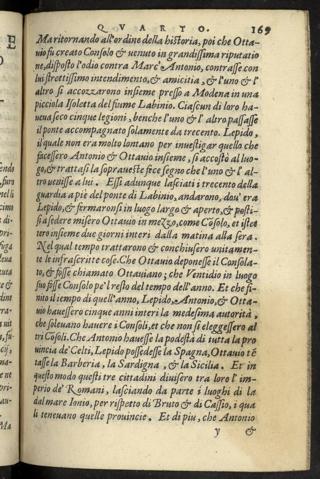 QVARTO. 169
Ma ritornando all'ordine della historia, poi che Otta-
uio fu creato Consolo & uenuto in grandissima riputatio
ne, disposto l'odio contra Marc'Antonio, contrasse con
lui strettissimo intendimento, & amicitia, & l'uno & l'
altro si accozzarono insieme presso a Modena in una
picciola Isoletta del fiume Labinio. Ciascun di loro ha-
ueua seco cinque legioni, benche l'uno & l'altro passasse
il ponte accompagnato solamente da trecento. Lepido,
il quale non era molto lontano per inuestigar quello che
facessero Antonio & Ottauio insieme, si accostò al luo-
go, & tratta si la soprauesta fece segno che l'uno & l'al-
tro uenisse a lui. Essi adunque lasciati i trecento della
guardia a piè del ponte di Labinio, andarono, dou'era
Lepido, & fermaronsi in luogo largo & aperto, & posti-
si a sedere misero Ottauio in mezzo, come Cōsolo, et istet
tero insieme due giorni interi dalla matina alla sera.
Nel qual tempo trattarono & conchiusero unitamen-
te le infrascritte cose. Che Ottauio deponesse il Consola-
to, & fosse chiamato Ottauiano; che Ventidio in luogo
suo fosse Consolo pe'l resto del tempo dell'anno. Et che fi-
nito il tempo di quell'anno, Lepido, Antonio, & Otta-
uio hauessero cinque anni interi la medesima autorità,
che soleuano hauere i Consoli, et che non si eleggessero al
tri Cōsoli. Che Antonio hauesse la podestà di tutta la pro
uincia de'Celti, Lepido possedesse la Spagna, Ottauio tē
tasse la Barberia, la Sardigna, & la Sicilia. Et in
questo modo questi tre cittadini diuisero tra loro l'im-
perio de' Romani, lasciando da parte i luoghi di la
dal mare Ionio, per rispetto di Bruto & di Cassio, i qua
li teneuano quelle prouincie. Et di piu, che Antonio
y &